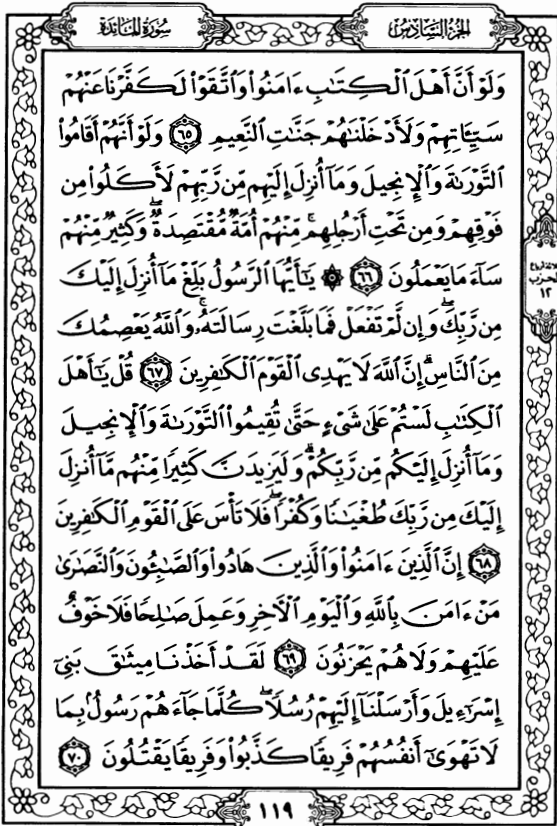 الجزء السادس
سورة المائدة
وَلَوْ أَنَّ أَهْلَ ٱلْكِتَٰبِ ءَامَنُوا۟ وَٱتَّقَوْا۟ لَكَفَّرْنَا عَنْهُمْ
سَيِّـَٔاتِهِمْ وَلَأَدْخَلْنَٰهُمْ جَنَّٰتِ ٱلنَّعِيمِ ٦٥ وَلَوْ أَنَّهُمْ أَقَامُوا۟
ٱلتَّوْرَىٰةَ وَٱلْإِنجِيلَ وَمَآ أُنزِلَ إِلَيْهِم مِّن رَّبِّهِمْ لَأَكَلُوا۟ مِن
فَوْقِهِمْ وَمِن تَحْتِ أَرْجُلِهِم ۚ مِّنْهُمْ أُمَّةٌ مُّقْتَصِدَةٌ ۖ وَكَثِيرٌ مِّنْهُمْ
سَآءَ مَا يَعْمَلُونَ ٦٦ ۞ يَٰٓأَيُّهَا ٱلرَّسُولُ بَلِّغْ مَآ أُنزِلَ إِلَيْكَ
مِن رَّبِّكَ ۖ وَإِن لَّمْ تَفْعَلْ فَمَا بَلَّغْتَ رِسَالَتَهُۥ ۚ وَٱللَّهُ يَعْصِمُكَ
مِنَ ٱلنَّاسِ ۗ إِنَّ ٱللَّهَ لَا يَهْدِى ٱلْقَوْمَ ٱلْكَٰفِرِينَ ٦٧ قُلْ يَٰٓأَهْلَ
ٱلْكِتَٰبِ لَسْتُمْ عَلَىٰ شَىْءٍ حَتَّىٰ تُقِيمُوا۟ ٱلتَّوْرَىٰةَ وَٱلْإِنجِيلَ
وَمَآ أُنزِلَ إِلَيْكُم مِّن رَّبِّكُمْ ۗ وَلَيَزِيدَنَّ كَثِيرًا مِّنْهُم مَّآ أُنزِلَ
إِلَيْكَ مِن رَّبِّكَ طُغْيَٰنًا وَكُفْرًا ۖ فَلَا تَأْسَ عَلَى ٱلْقَوْمِ ٱلْكَٰفِرِينَ
٦٨ إِنَّ ٱلَّذِينَ ءَامَنُوا۟ وَٱلَّذِينَ هَادُوا۟ وَٱلصَّٰبِـُٔونَ وَٱلنَّصَٰرَىٰ
مَنْ ءَامَنَ بِٱللَّهِ وَٱلْيَوْمِ ٱلْءَاخِرِ وَعَمِلَ صَٰلِحًا فَلَا خَوْفٌ
عَلَيْهِمْ وَلَا هُمْ يَحْزَنُونَ ٦٩ لَقَدْ أَخَذْنَا مِيثَٰقَ بَنِىٓ
إِسْرَٰٓءِيلَ وَأَرْسَلْنَآ إِلَيْهِمْ رُسُلًا ۖ كُلَّمَا جَآءَهُمْ رَسُولٌۢ بِمَا
لَا تَهْوَىٰٓ أَنفُسُهُمْ فَرِيقًا كَذَّبُوا۟ وَفَرِيقًا يَقْتُلُونَ ٧٠
الحزب
١٢
١١٩